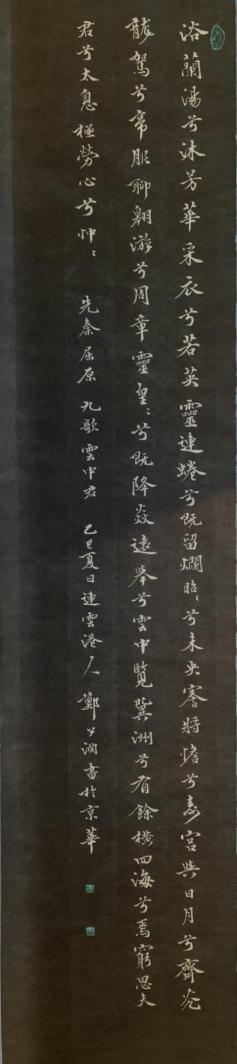 浴蘭湯兮沐芳華采衣兮若英靈連蜷兮既留爛昭〻兮未央謇將憺兮壽宮與日月兮齊光
龍駕兮帝服聊翱游兮周章靈皇〻兮既降焱遠舉兮雲中覽冀洲兮有餘橫四海兮焉窮思夫
君兮太息極勞心兮忡〻
先秦屈原九歌雲中君乙巳夏日連雲港人鄭少渊書於京華